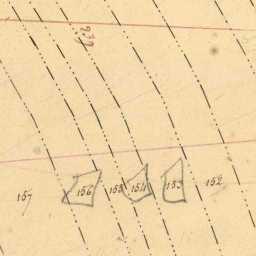 157 156 155 154 153 152